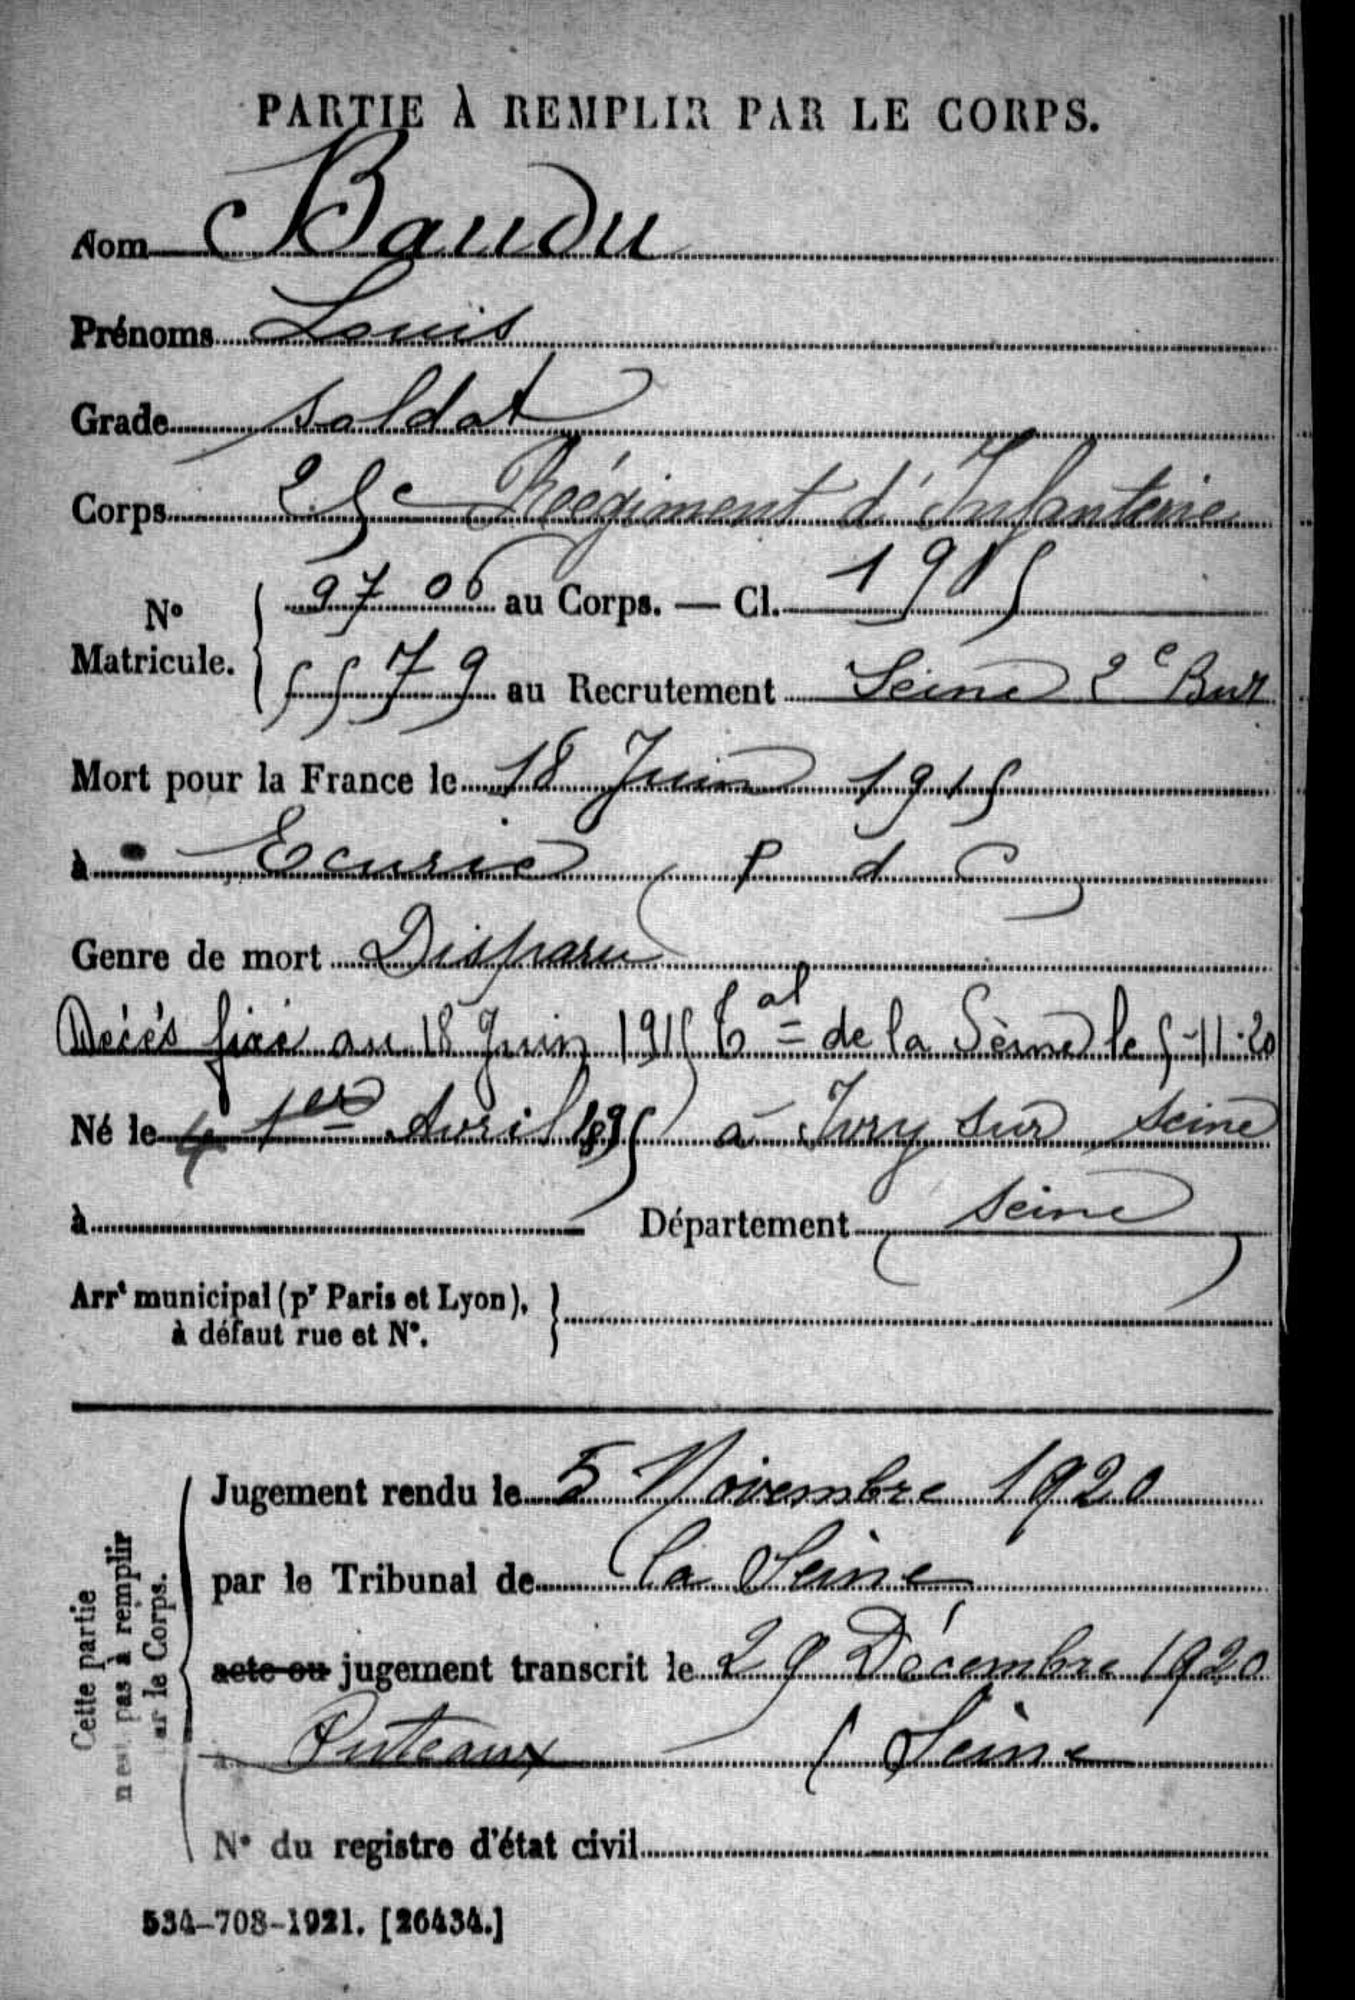 PARTIE À REMPLIR PAR LE CORPS.
Nom Baudu
Prénoms Louis
Grade soldat
Corps 25e Régiment d'Infanterie
N° Matricule. 9706 au Corps. — Cl. 1915
5579 au Recrutement Seine 2e Bur
Mort pour la France le 18 Juin 1915
à Ecurie (P d C)
Genre de mort Disparu
Décès fixé au 18 Juin 1915 Tal de la Seine le 5-11-20
Né le 1er Avril 1895 à Ivry sur Seine
à Département Seine
Arrt municipal (pr Paris et Lyon),
à défaut rue et N°.
Cette partie
n'est pas à remplir
par le Corps.
Jugement rendu le 5 Novembre 1920
par le Tribunal de la Seine
acte ou jugement transcrit le 29 Décembre 1920
à Puteaux (Seine
N° du registre d'état civil
534-708-1921. [26434.]